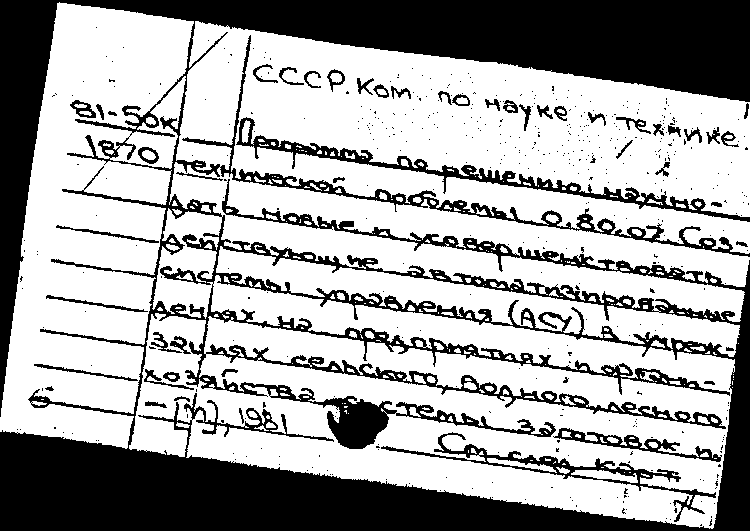 СССР. Ком. по науке и технике.
81-50к
1870
Программа по решению научно-
технической проблемы 0.80.07. Соз-
дать новые и усовершенствовать
действующие автоматизированные
системы управления (АСУ) в учреж-
дениях, на предприятиях и органи-
зациях сельского, водного, лесного
хозяйства, системы заготовок и
— [М], 1981
См след. карт.
б